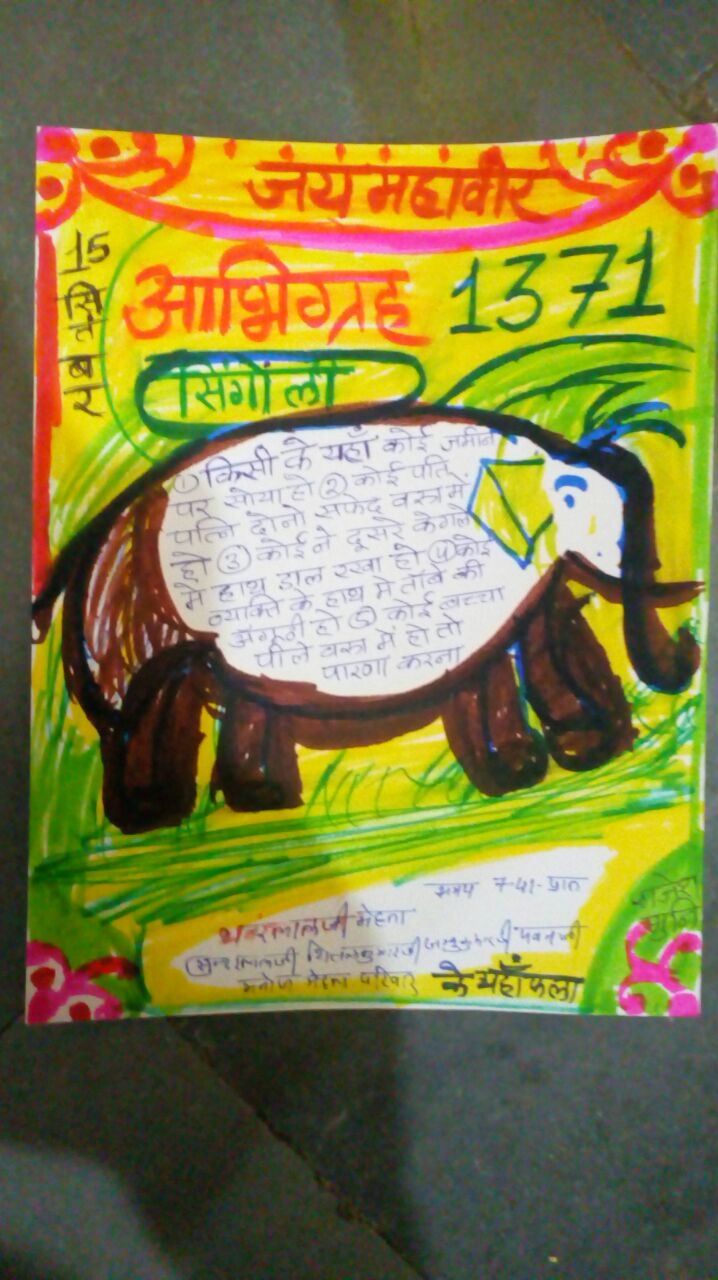 जय महावीर
15 सितंबर
आभिग्रह 1371
सिंगोली
① किसी के यहाँ कोई जमीन
पर सोया हो ② कोई पति
पत्नि दोनो सफेद वस्त्र में
हो ③ कोई ने दूसरे के गले
मे हाथ डाल रखा हो ④ कोई
व्यक्ति के हाथ मे ताँबे की
अंगूठी हो ⑤ कोई बच्चा
पीले वस्त्र में हो तो
पारणा करना
समय 7-41- प्रात
भंवरलालजी मेहता
मनोज मेहता परिवार के यहाँ फला